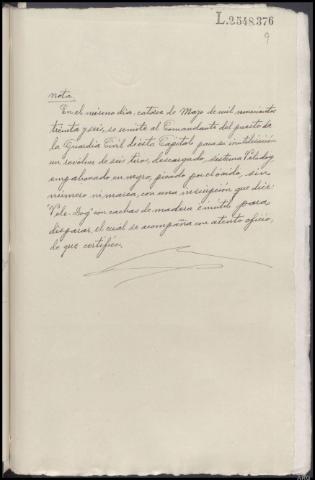 L.2548.376
9
nota.
En el mismo dia, catorce de Mayo de mil novecientos
treinta y seis, se remite al Comandante del puesto de
la Guardia Civil de esta Capital para su inutilización
un revolver de seis tiros, descargado, sistema Veledog
empabonado en negro, picado por el oxido, sin
número ni marca, con una inscripción que dice
"Vele-Dog" con cachas de madera e inutil para
disparar, el cual se acompaña con atento oficio,
de que certifico.